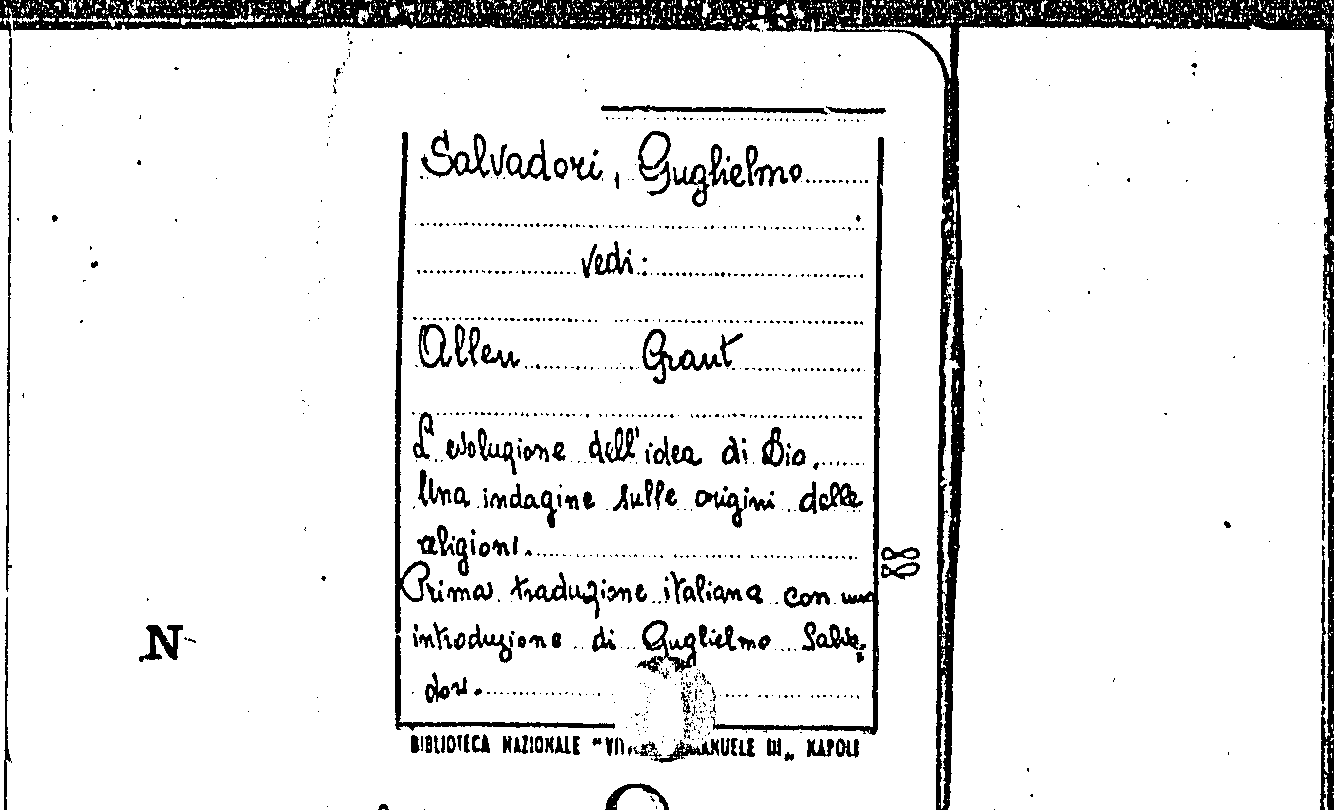 Salvadori, Guglielmo
vedi:
Allen Grant
L'evoluzione dell'idea di Dio.
Una indagine sulle origini delle
religioni.
Prima traduzione italiana con una
introduzione di Guglielmo Salva-
dori.
88
N
BIBLIOTECA NAZIONALE "VITT EMANUELE III„ NAPOLI